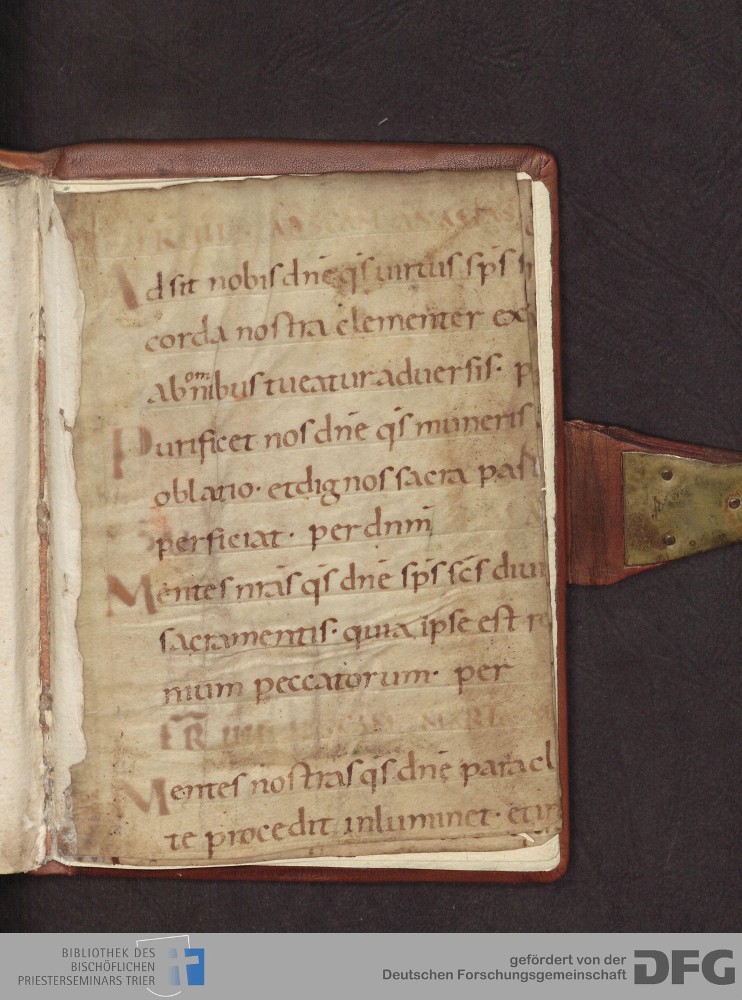 Adsit nobis dn̄e q̄s uirtus sp̄s
corda nostra clementer ex
ab omnibus tueatur aduersis· p
Purificet nos dn̄e q̄s muneris
oblatio· et dignos sacra
perficiat· per dnm̄
Mentes nr̄as q̄s dn̄e sp̄s sc̄s
sacramentis· quia ipse est re
nium peccatorum· per
FR̄ IIII
Mentes nostras q̄s dn̄e paracl
te procedit inluminet· et in
BIBLIOTHEK DES
BISCHÖFLICHEN
PRIESTERSEMINARS TRIER
gefördert von der
Deutschen Forschungsgemeinschaft
DFG